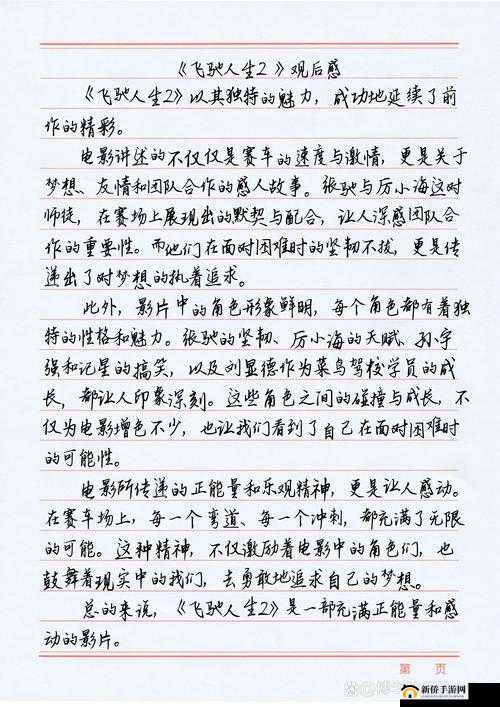 《飞驰人生2》观后感
《飞驰人生2》以其独特的魅力，成功地延续了前
作的精彩。
电影讲述的不仅仅是赛车的速度与激情，更是关于
梦想、友情和团队合作的感人故事。张驰与厉小海这对
师徒，在赛场上展现出的默契与配合，让人深感团队合
作的重要性。而他们在面对困难时的坚韧不拔，更是传
递出了对梦想的执着追求。
此外，影片中的角色形象鲜明，每个角色都有着独
特的性格和魅力。张驰的坚韧、厉小海的天赋、孙宇
强和记星的搞笑，以及刘显德作为菜鸟驾校学员的成
长，都让人印象深刻。这些角色之间的碰撞与成长，不
仅为电影增色不少，也让我们看到了自己在面对困难时
的可能性。
电影所传递的正能量和乐观精神，更是让人感动。
在赛车场上，每一个弯道、每一个冲刺，都充满了无限
的可能。这种精神，不仅激励着电影中的角色们，也
鼓舞着现实中的我们，去勇敢地追求自己的梦想。
总的来说，《飞驰人生2》是一部充满正能量和感
动的影片。
第 页
新侨手游网